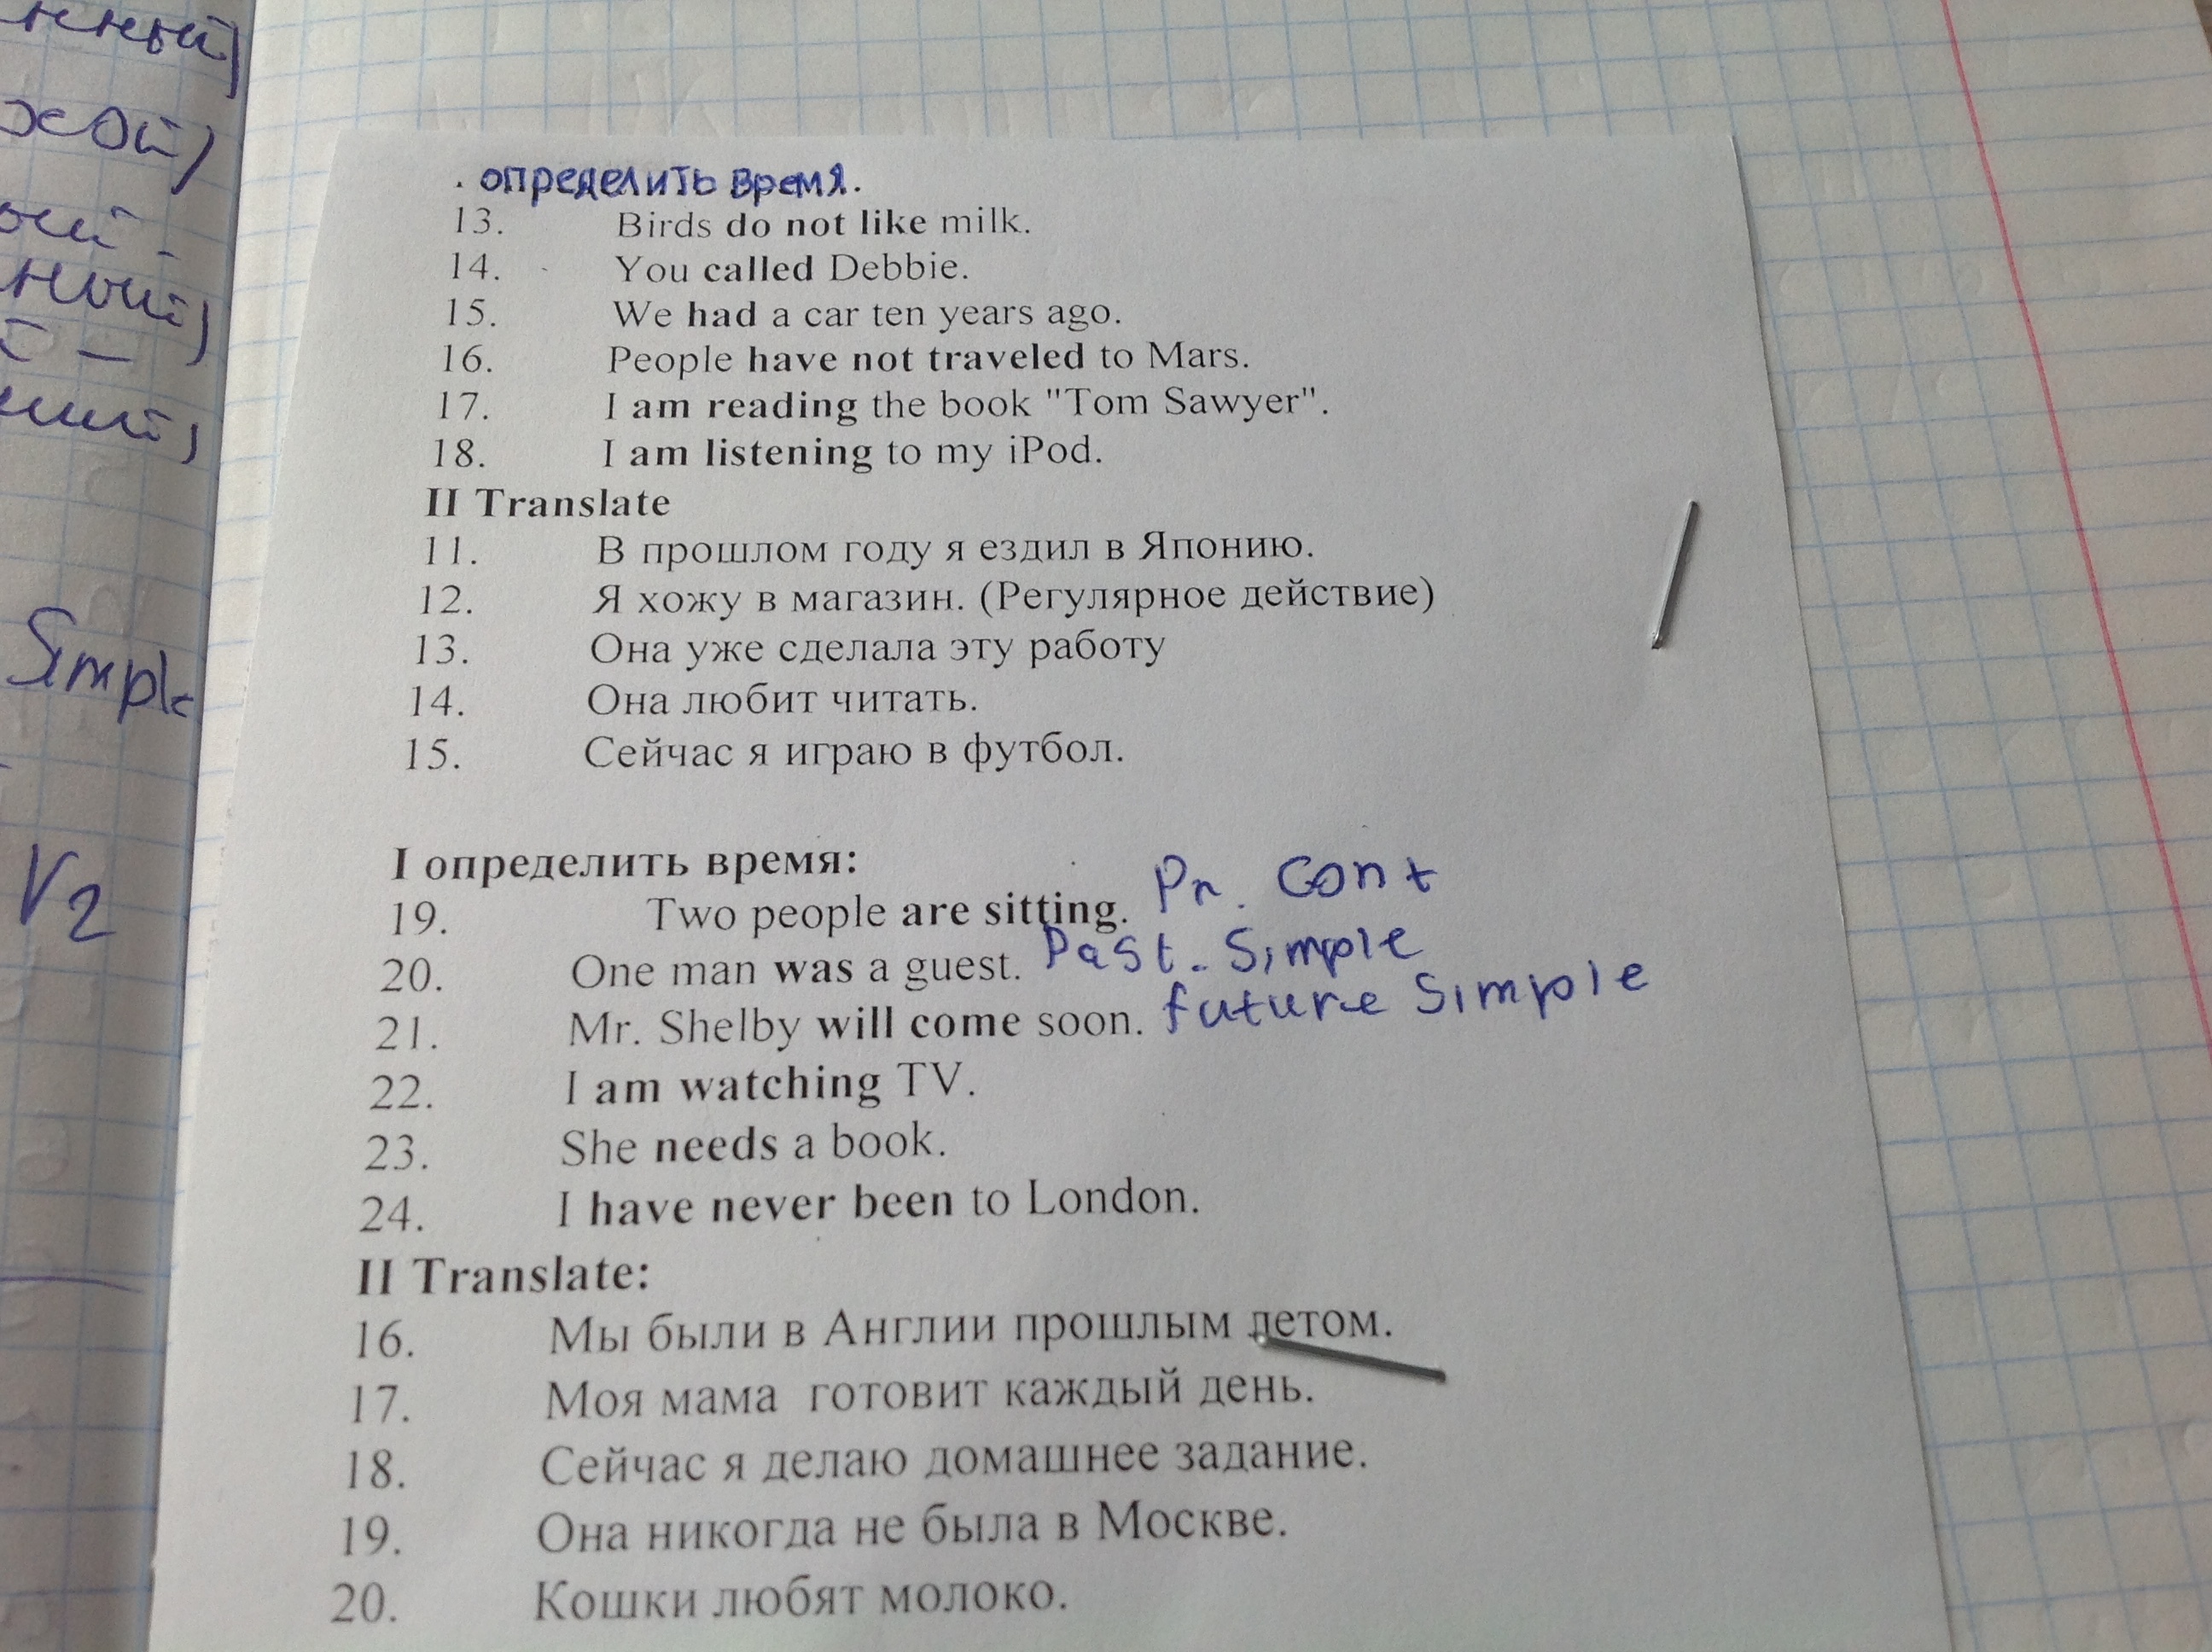 нный)
жой)
ой -
ной)
й -
Simple
V2
. определить время.
13. Birds do not like milk.
14. You called Debbie.
15. We had a car ten years ago.
16. People have not traveled to Mars.
17. I am reading the book "Tom Sawyer".
18. I am listening to my iPod.
II Translate
11. В прошлом году я ездил в Японию.
12. Я хожу в магазин. (Регулярное действие)
13. Она уже сделала эту работу
14. Она любит читать.
15. Сейчас я играю в футбол.
I определить время:
19. Two people are sitting. Pr. Cont
20. One man was a guest. Past. Simple
21. Mr. Shelby will come soon. future Simple
22. I am watching TV.
23. She needs a book.
24. I have never been to London.
II Translate:
16. Мы были в Англии прошлым летом.
17. Моя мама готовит каждый день.
18. Сейчас я делаю домашнее задание.
19. Она никогда не была в Москве.
20. Кошки любят молоко.